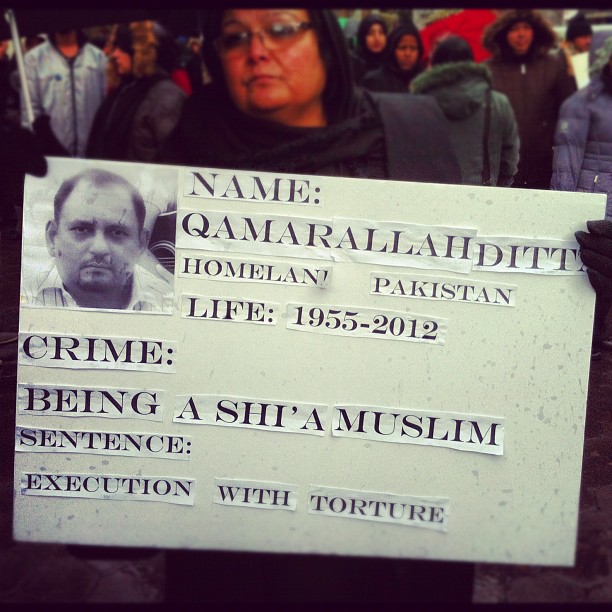 NAME:
QAMARALLAHDITT
HOMELAN PAKISTAN
LIFE: 1955-2012
CRIME:
BEING A SHI'A MUSLIM
SENTENCE:
EXECUTION WITH TORTURE